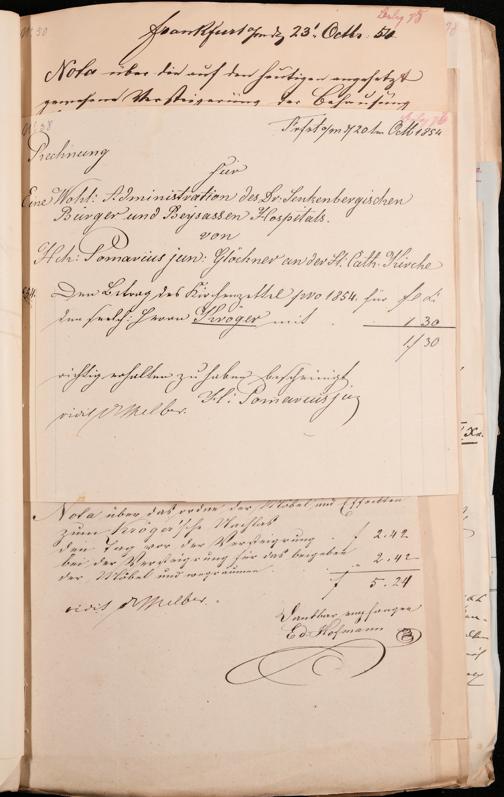 Beleg 75
No 30
Frankfurt a/m den 23t. Octbr. 54.
Nota über die auf den heutigen angesetzt
gewesene Versteigerung der Behausung
Beleg 76
No 38
Frkft a/m d/ 20ten Octb 1854
Rechnung
für
Eine Wohl: Administration des Dr. Senkenbergischen
Bürger und Beysassen Hospitals.
von
Hch: Pomarius jun: Glöckner an der St. Cath. Kirche
Den Betrag des Kirchenzettel pro 1854. für fl. x.
den seelig: Herrn Kröger mit . . 1 30
1f 30
richtig erhalten zu haben bescheinigt
H: Pomarius jun
vidit Dr Melber.
Nota über das ordne der Möbel und Effecten
zum Kröger'sche Nachlas
den Tag vor der Versteigrung . f 2.42
bei der Versteigrung für das beigeben
der Möbel und wegräumen . 2.42
f 5.24
vidit Dr Melber.
Dankbar empfangen
Ed: Hofmann
Xr.